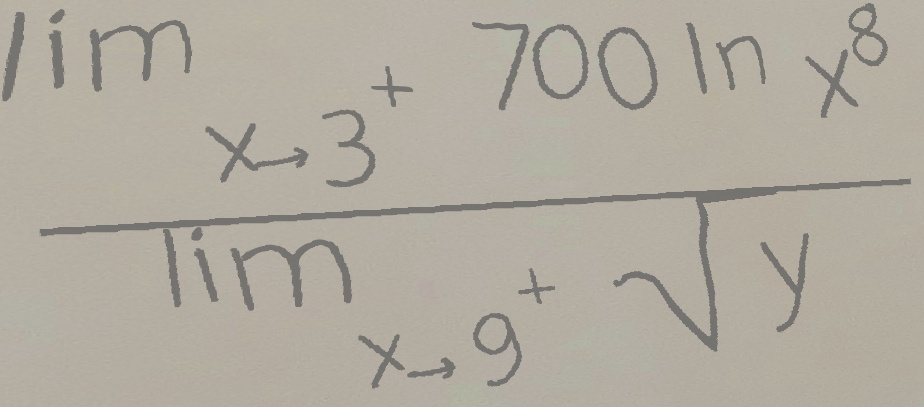 lim x→3⁺ 700 ln x⁸
lim x→9⁺ √y